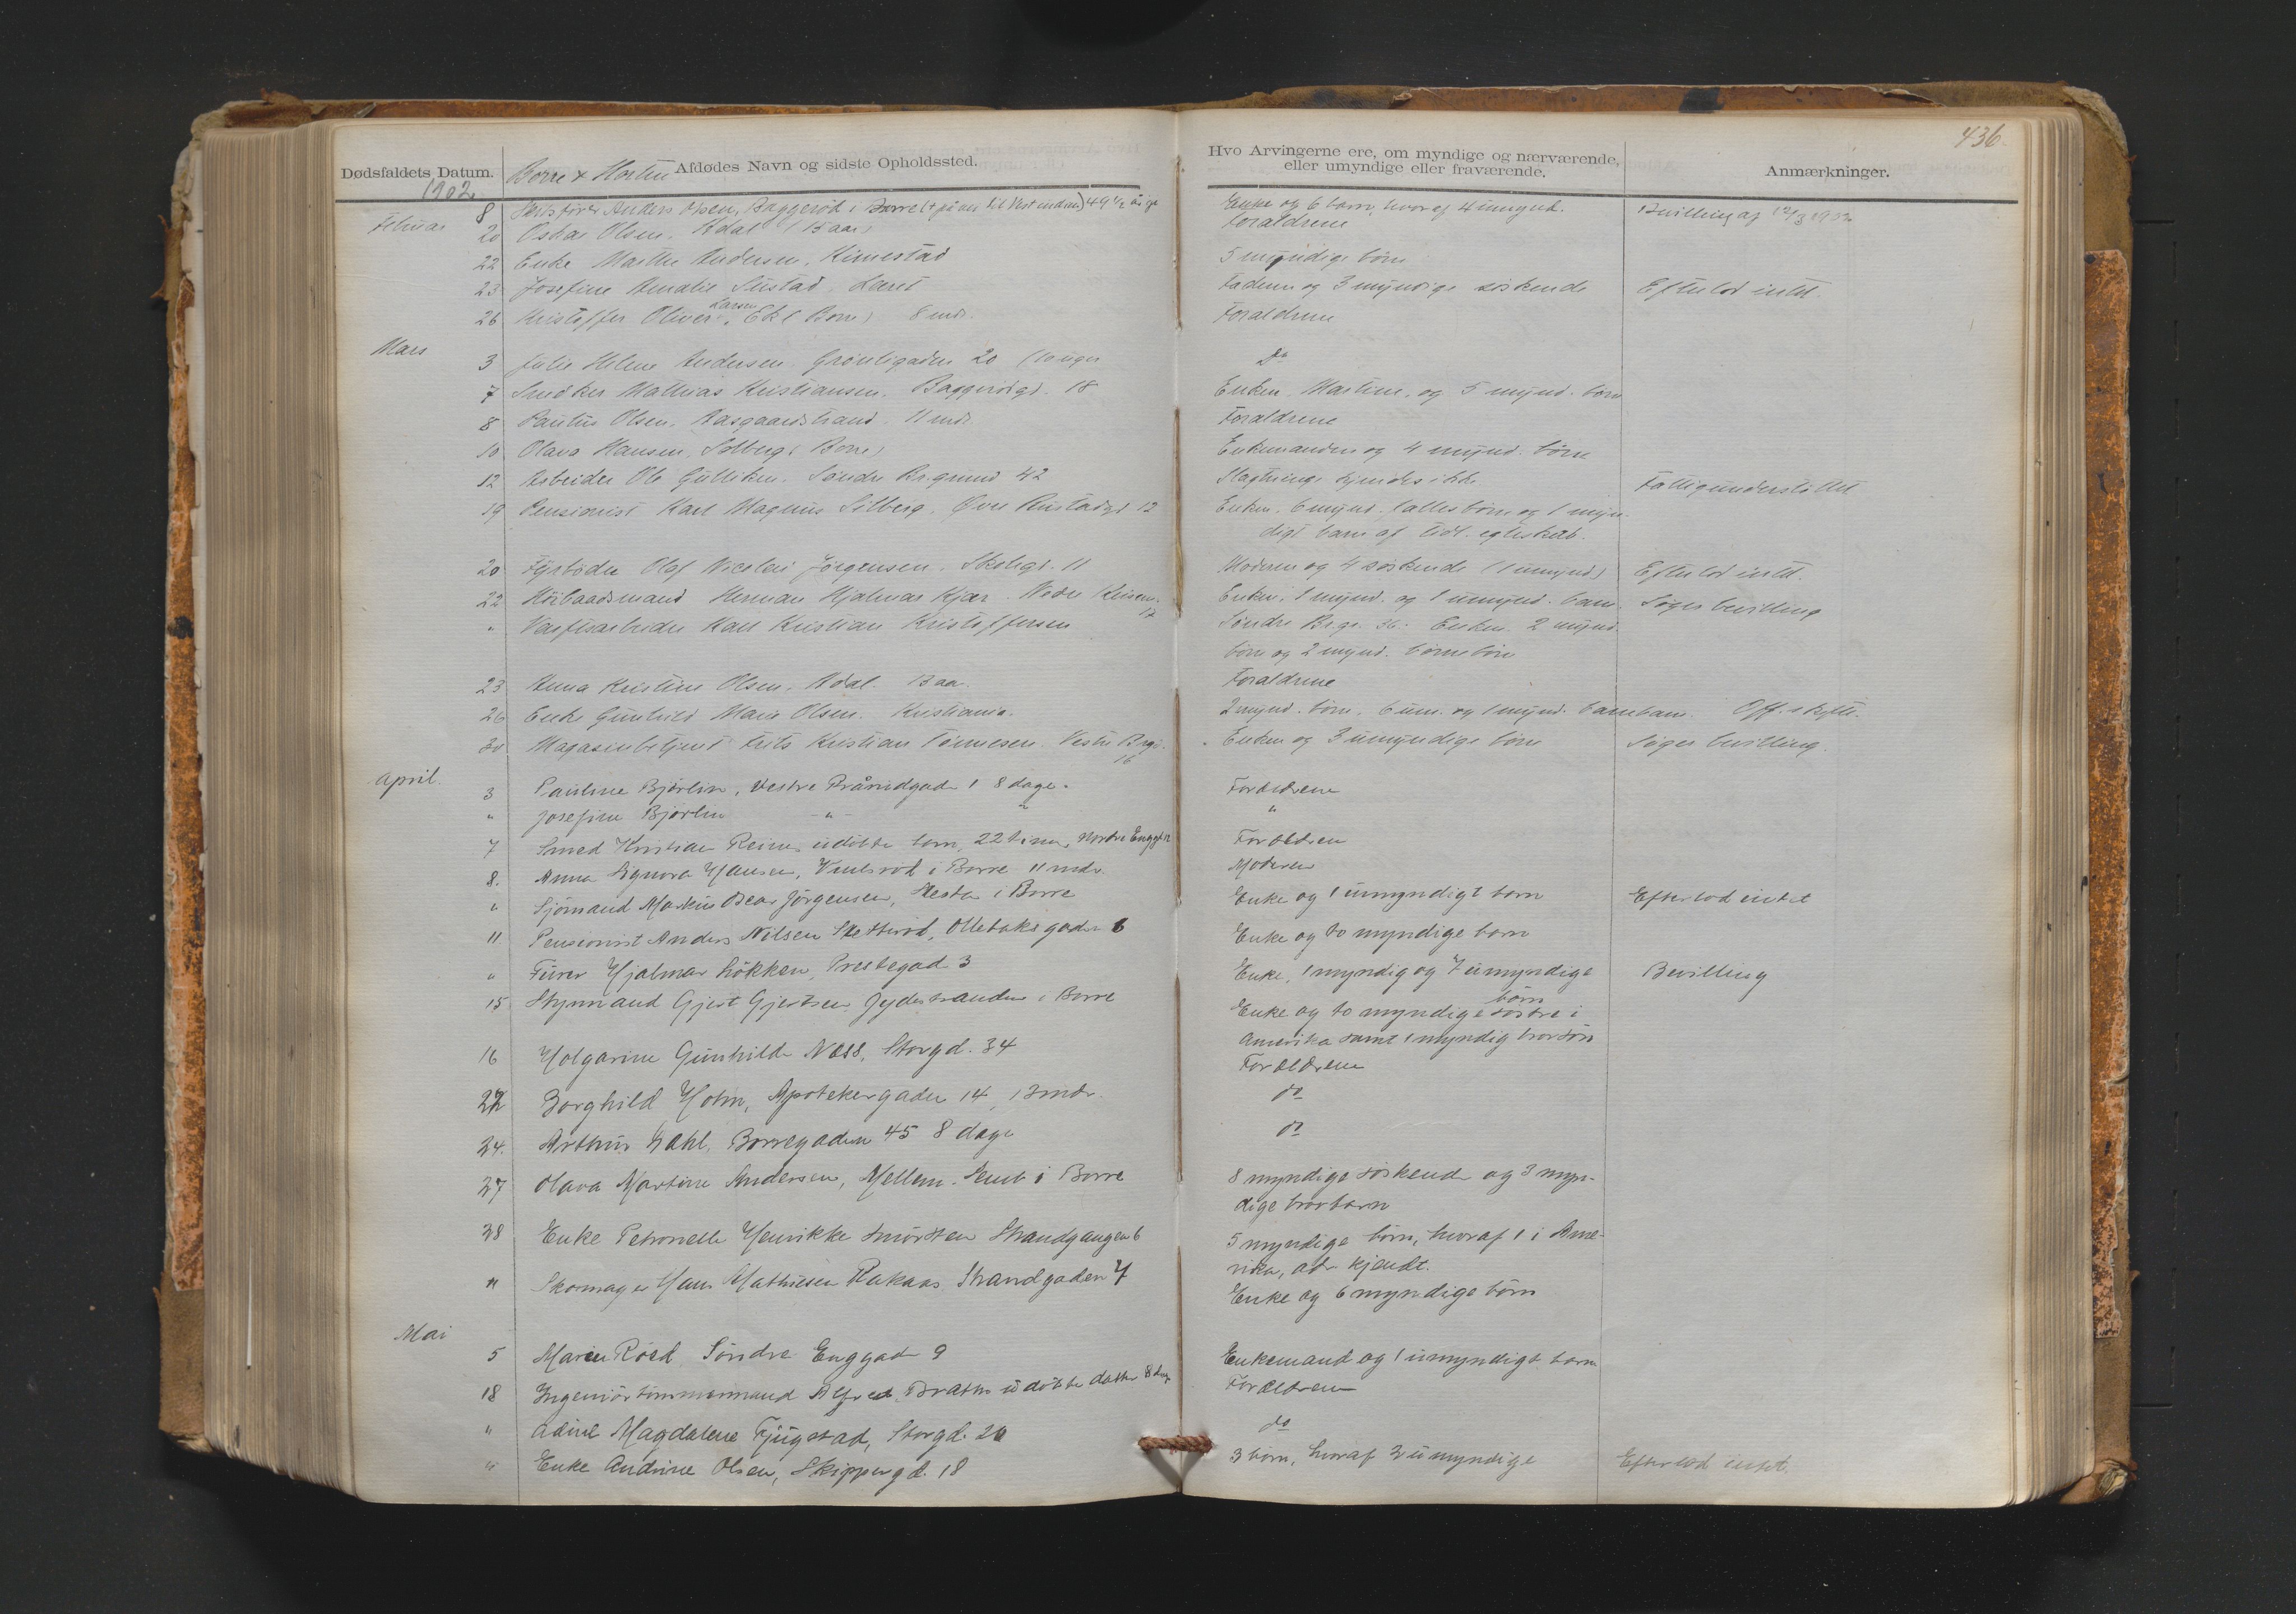 436.
Dødsfaldets Datum. Borre & Horten Afdødes Navn og sidste Opholdssted. Hvo Arvingerne ere, om myndige og nærværende, eller umyndige eller fraværende. Anmærkninger.
1902
Februar 8 Anders Olsen, Baggerød i Borre 49 1/2 Enke og 6 børn, hvoraf 4 umynd. Bevilling af 12/3 1902
20 Oskar Olsen. Adal (13 aar) Forældrene
22 Enke Marthe Andersen, Kimestad 5 myndige børn
23 Josefine Amalie Faderen og 3 myndige søskende Efterlod intet.
26 Kristoffer Oliver Larsen, Borre) 8 mdr. Forældrene
Mars 3 Julie Helene Andersen Grønligaden 20 (10 uger do
7 Snedker Mathias Kristiansen. Baggerødgd. 18 Enken Martine, og 5 mynd. børn
8 Paulus Olsen, Aasgaardstrand. 11 mdr. Forældrene
10 Olava Hansen, Solberg (Borre) Enkemanden og 4 mynd. børn
12 Arbeider Ole Gulliksen. Søndre Brgrund 42 Slægtninge kjendes ikke. Fattigunderstøttet
19 Pensionist Karl Magnus Silberg. Øvre 12 Enken, 6 mynd. fælles børn og 1 myn-
digt barn af tidl. egteskab.
20 Fyrbøder Olaf Nicolai Jørgensen. Skolegd. 11 Moderen og 4 søskende (1 umynd) Efterlod intet.
22 Herman Hjalmar Kjær. Nedre 17 Enken, 1 mynd. og 1 umynd. barn. Søger bevilling
" Værftsarbeider Karl Kristian Kristoffersen Søndre Brgr. 36. Enken. 2 mynd.
børn og 2 mynd. børnebørn
23 Anna Kristine Olsen, Adal. 13 aar. Forældrene
26 Enke Gunhild Marie Olsen. Kristiania. 2 mynd. børn, 6 um. og 1 mynd. barnebarn. Off. skifte.
30 Magasinbetjent Frits Kristian Tønnesen. Vestre Brgr. 16 Enken og 3 umyndige børn Søger bevilling.
April. 3 Pauline Bjørlin, Vestre 1 8 dage. Forældrene
" Josefine Bjørlin " " "
7 Smed Kristian Reines udøbte barn, 22 timer, Nordre Enggt 12 Forældren
8. Anna Signora Hansen, i Borre 11 mdr. Moderen
" Sjømand Markus Oscar Jørgensen, i Borre Enke og 1 umyndigt barn Efterlod intet
11 Pensionist Anders Nilsen Skotterød, gaden 6 Enke og to myndige børn
" Furer Hjalmar Løkken, Prestegad 3 Enke, 1 myndig og 7 umyndige børn Bevilling
15 Styrmand Gjert Gjertsen, i Borre Enke og to myndige søstre i
Amerika samt 1 myndig brorsøn
16 Holgarine Gunhilde Næss, Storgd. 34 Forældrene
22 Borghild Holm, Apotekergaden 14, 13 mdr. do
24. Arthur Dahl, Borregaden 45 8 dage do
27 Olava Martine Andersen, Mellem-Semb i Borre 8 myndige søskende og 3 myn-
dige brorbørn
28 Enke Petronelle Henrikke Strandgangen 6 5 myndige børn, hvoraf 1 i Ame-
rika, adr. kjendt.
" Skomager Hans Mathisen Rakaas, Strandgaden 7 Enke og 6 myndige børn
Mai 5 Maren Røed Søndre Enggad 9 Enkemand og 1 umyndigt barn
18 Ingeniørtømmermand Alfred udøbte datter 8 dage Forældren
" Adine Magdalene Fjugstad, Storgd. 20 do
" Enke Andrine Olsen, Skippergd. 18 3 børn, hvoraf 2 umyndige Efterlod intet.